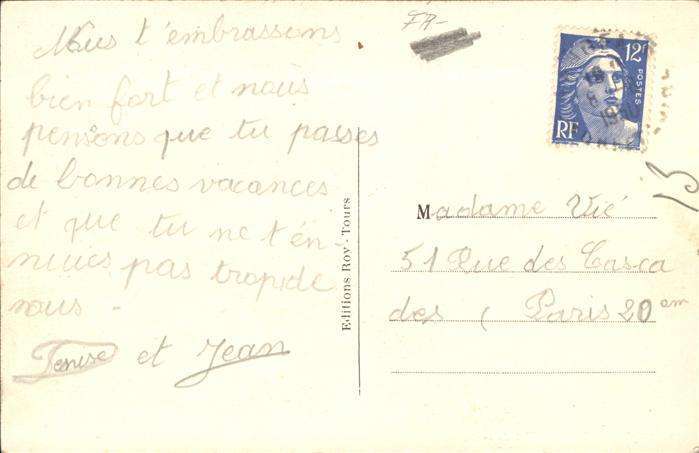 Nous t'embrassons
bien fort et nous
pensons que tu passes
de bonnes vacances
et que tu ne t'en-
nuies pas trop de
nous.
Denise et Jean
Editions Roy - Tours
FR-
12F
POSTES
RF
Madame Vié
51 Rue des Casca
des ( Paris 20 em